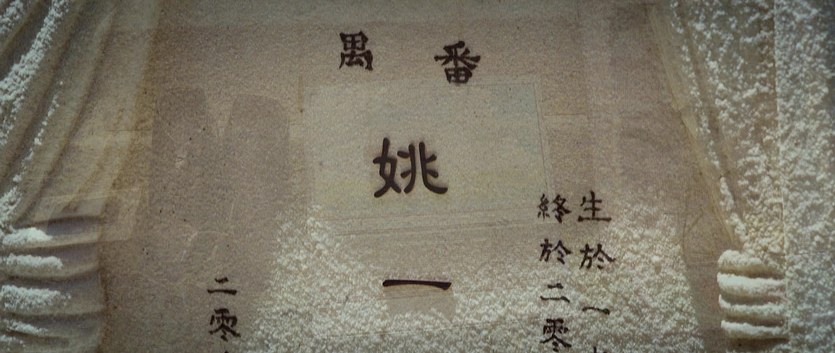 番禺
生於一
終於二零
姚一
二零